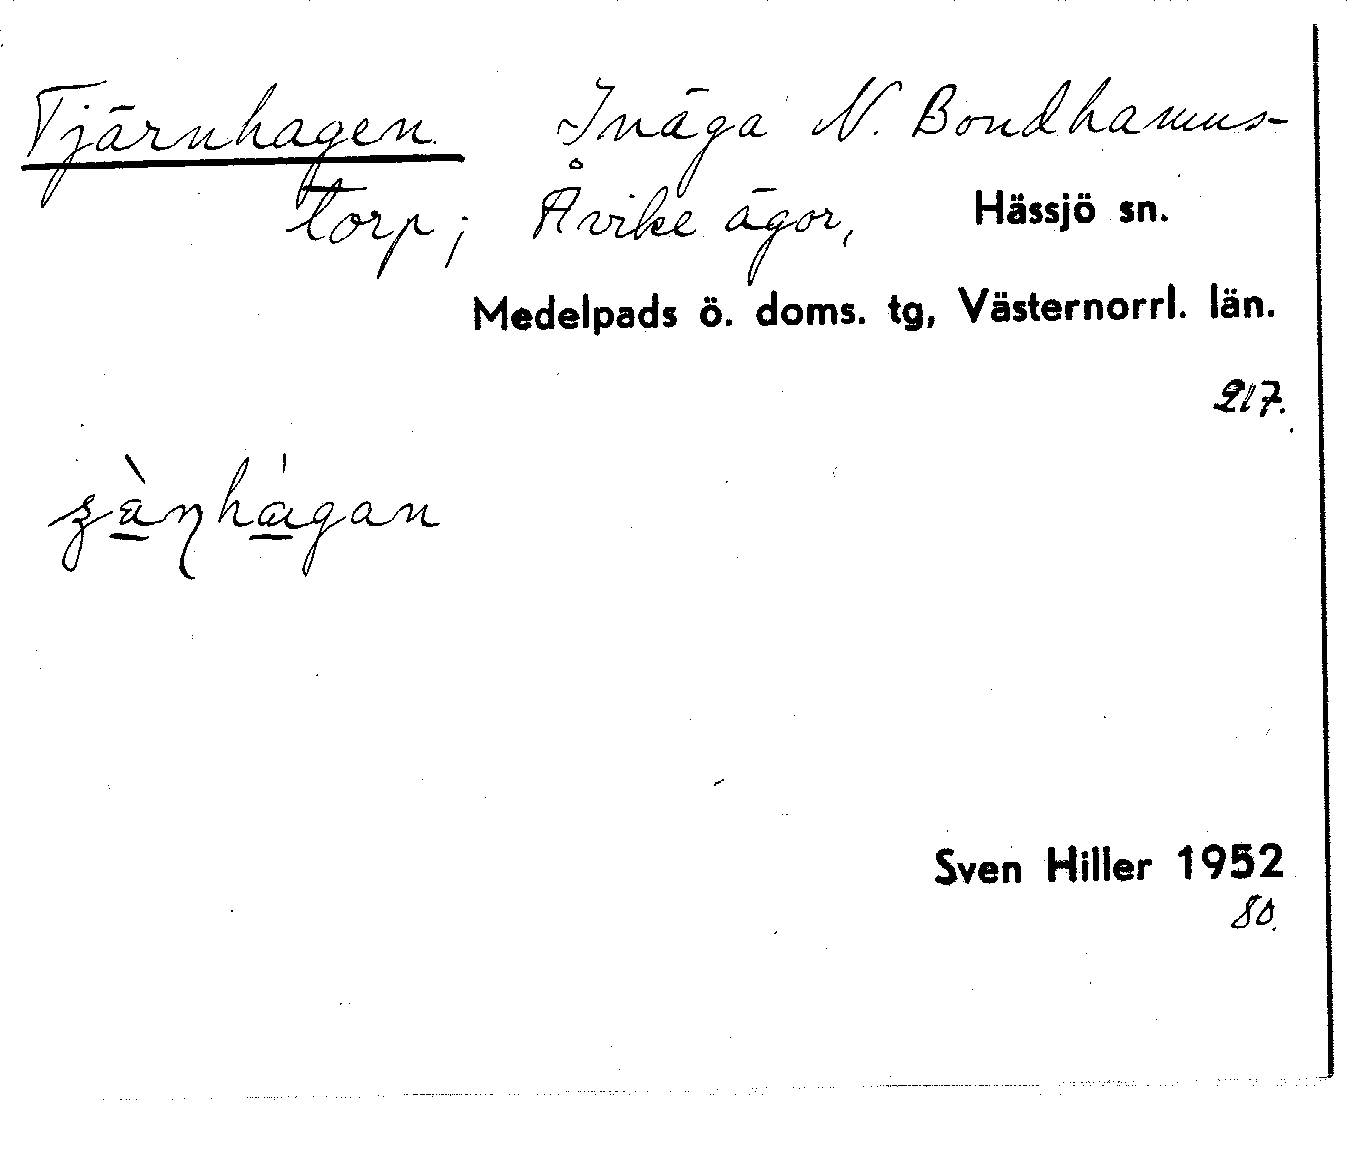 Tjärnhagen. Inäga N. Bondhamns-
torp; Åvike ägor, Hässjö sn.
Medelpads ö. doms. tg, Västernorrl. län.
217.
Sven Hiller 1952
80.